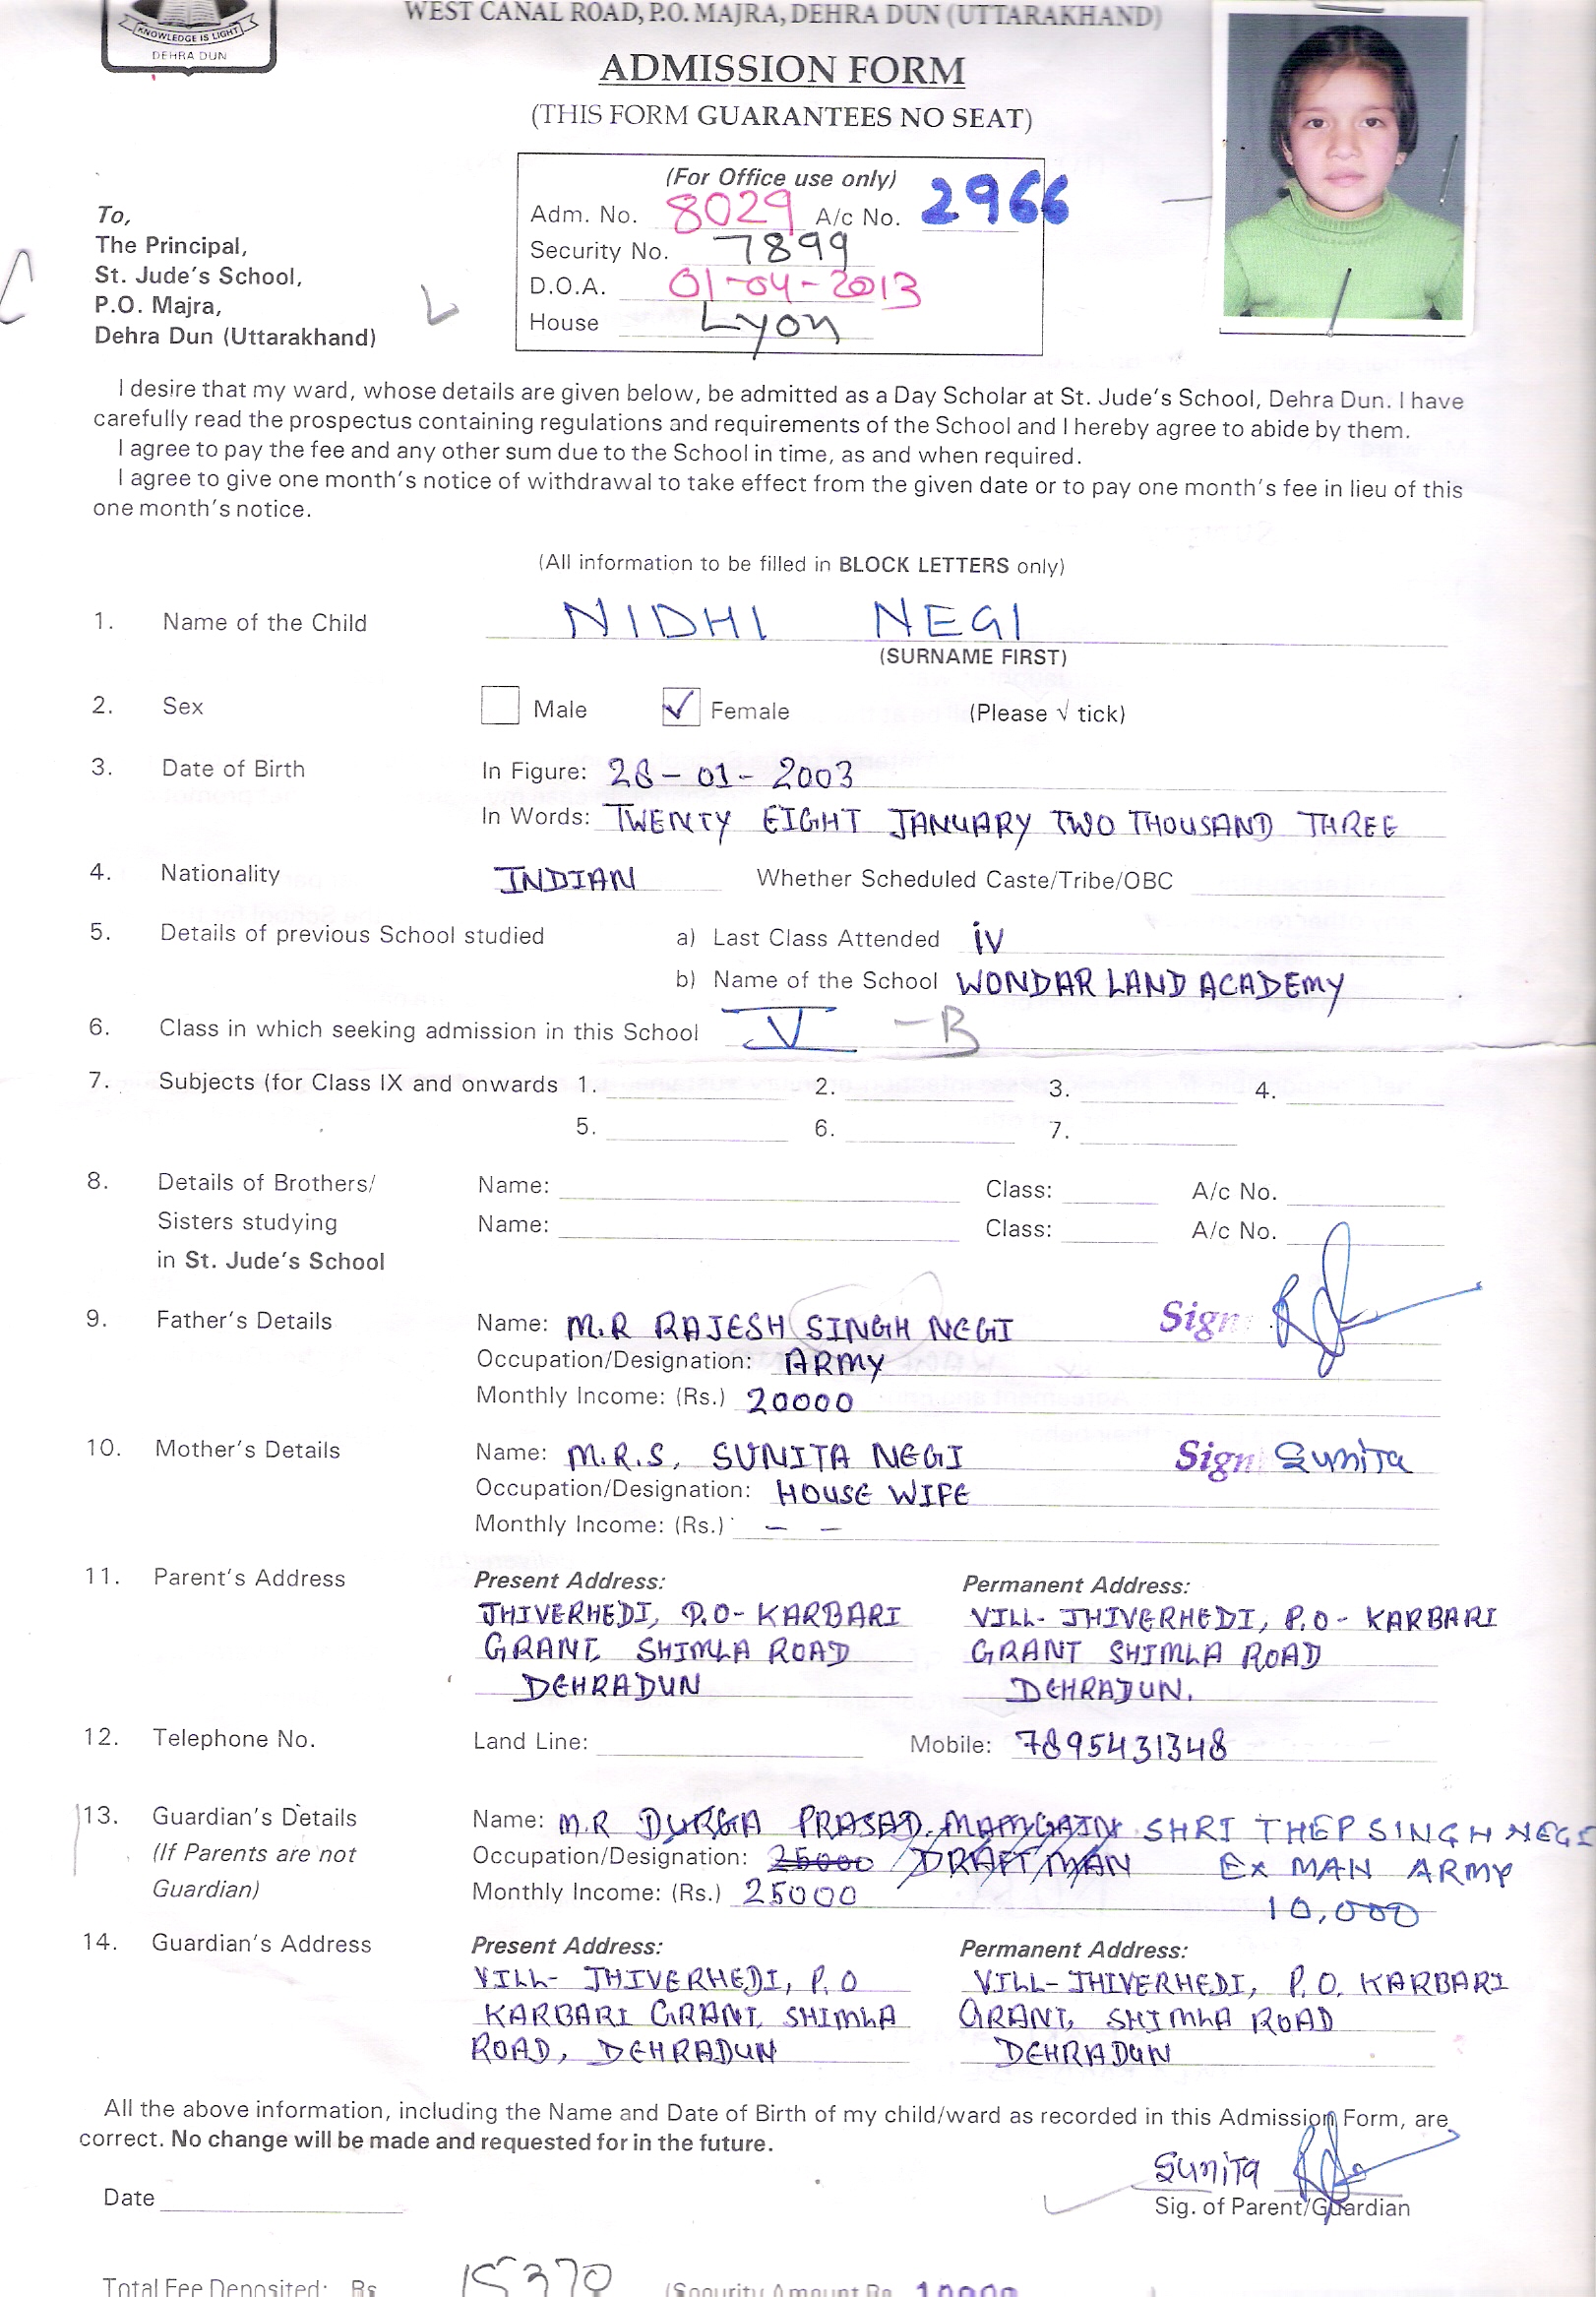 WEST CANAL ROAD, P.O. MAJRA, DEHRA DUN (UTTARAKHAND)
KNOWLEDGE IS LIGHT
DEHRA DUN
ADMISSION FORM
(THIS FORM GUARANTEES NO SEAT)
(For Office use only)
Adm. No. 8029 A/c No. 2966
Security No. 7899
D.O.A. 01-04-2013
House Lyon
To,
The Principal,
St. Jude's School,
P.O. Majra,
Dehra Dun (Uttarakhand)
I desire that my ward, whose details are given below, be admitted as a Day Scholar at St. Jude's School, Dehra Dun. I have
carefully read the prospectus containing regulations and requirements of the School and I hereby agree to abide by them.
I agree to pay the fee and any other sum due to the School in time, as and when required.
I agree to give one month's notice of withdrawal to take effect from the given date or to pay one month's fee in lieu of this
one month's notice.
(All information to be filled in BLOCK LETTERS only)
1. Name of the Child NIDHI NEGI
(SURNAME FIRST)
2. Sex Male ✓ Female (Please √ tick)
3. Date of Birth In Figure: 28-01-2003
In Words: TWENTY EIGHT JANUARY TWO THOUSAND THREE
4. Nationality INDIAN Whether Scheduled Caste/Tribe/OBC
5. Details of previous School studied a) Last Class Attended iv
b) Name of the School WONDAR LAND ACADEMY
6. Class in which seeking admission in this School V -B
7. Subjects (for Class IX and onwards 1. 2. 3. 4.
5. 6. 7.
8. Details of Brothers/ Name: Class: A/c No.
Sisters studying Name: Class: A/c No.
in St. Jude's School
9. Father's Details Name: M.R RAJESH SINGH NEGI Sign
Occupation/Designation: ARMY
Monthly Income: (Rs.) 20000
10. Mother's Details Name: M.R.S, SUNITA NEGI Sign Sunita
Occupation/Designation: HOUSE WIFE
Monthly Income: (Rs.) - -
11. Parent's Address Present Address: Permanent Address:
JHIVERHEDI, P.O- KARBARI VILL- JHIVERHEDI, P.O- KARBARI
GRANT, SHIMLA ROAD GRANT SHIMLA ROAD
DEHRADUN DEHRADUN.
12. Telephone No. Land Line: Mobile: 7895431348
13. Guardian's Details Name: M.R DURGA PRASAD MAMGAIN SHRI THEP SINGH NEGI
(If Parents are not Occupation/Designation: 25000 DRAFT MAN EX MAN ARMY
Guardian) Monthly Income: (Rs.) 25000 10,000
14. Guardian's Address Present Address: Permanent Address:
VILL- JHIVERHEDI, P.O VILL- JHIVERHEDI, P.O. KARBARI
KARBARI GRANT, SHIMLA GRANT, SHIMLA ROAD
ROAD, DEHRADUN DEHRADUN
All the above information, including the Name and Date of Birth of my child/ward as recorded in this Admission Form, are
correct. No change will be made and requested for in the future.
Sunita
Date Sig. of Parent/Guardian
Total Fee Deposited: Rs 15370 (Security Amount Rs